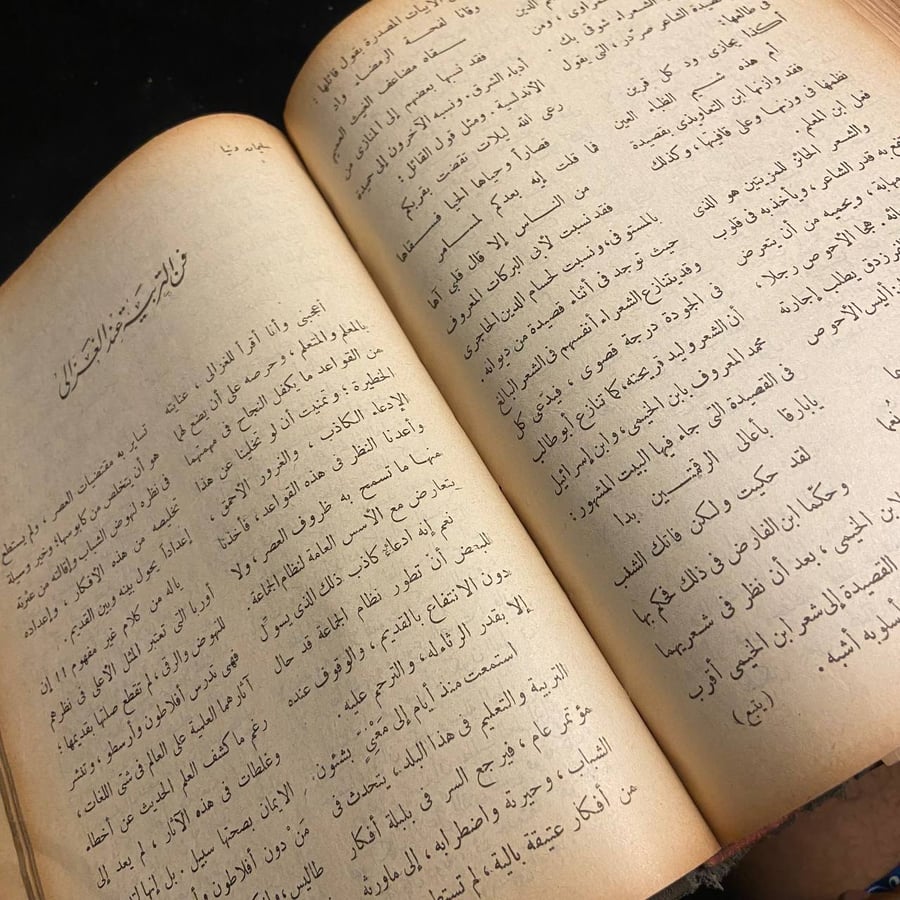 قصيدة الشاعر صردر، التي يقول
في طالعها:
أكذا يجازى ود كل قرين
أم هذه شيم الظباء العين
فقد وازنها ابن التعاويذي بقصيدة
نظمها في وزنها وعلى قافيتها، وكذلك
فعل ابن المعلم.
والشعر الحائز للمزيتين هو الذي
به قدر الشاعر، ويأخذ به في قلوب
مهابة، ويحميه من أن يتعرض
هجا الأحوص رجلا،
الفرزدق يطلب إجارته
أليس الأحوص
الأبيات المصدرة بقول قائلها:
وقانا لفحة الرمضاء واد
سقاه مضاعف الغيث العميم
فقد نسبها بعضهم إلى المنازي من
أدباء الشرق. ونسبه الآخرون إلى حميدة
الأندلسية. ومثل قول القائل:
رعى الله ليلات تقضت بقربكم
قصاراً وحياها الحيا وسقاها
فما قلت إيه بعدكم لمسامر
من الناس إلا قال قلبي آها
فقد نسبت لأبي البركات المعروف
بالمستوفى، ونسبت لحسام الدين الحاجرى
حيث توجد في أثناء قصيدة من ديوانه.
وقد يتنازع الشعراء أنفسهم في الشعر البالغ
في الجودة درجة قصوى، فيدعى كل
أن الشعر وليد قريحته، كما تنازع أبو طالب
محمد المعروف بابن الخيمى، وابن إسرائيل
في القصيدة التى جاء فيها البيت المشهور:
يابارقا بأعالى الرقمتين بدا
لقد حكيت ولكن فاتك الشنب
وحكّما ابن الفارض في ذلك فحكم بها
لابن الخيمى، بعد أن نظر في شعريهما
القصيدة إلى شعر ابن الخيمى أقرب
أسلوبه أشبه.
(يتبع)
فن التربية عند الغزالى
أعجبنى وأنا أقرأ للغزالى، عنايته
بالمعلم والمتعلم، وحرصه على أن يضع لهما
من القواعد ما يكفل النجاح في مهمتهما
الخطيرة؛ وتمنيت أن لو تخلينا عن هذا
الإدعاء الكاذب، والغرور الأحمق،
وأعدنا النظر في هذه القواعد، فأخذنا
منها ما تسمح به ظروف العصر، ولا
يتعارض مع الأسس العامة لنظام الجماعة.
نعم إنه ادعاء كاذب ذلك الذى يسوّل
للبعض أنّ تطور نظام الجماعة قد حال
دون الانتفاع بالقديم، والوقوف عنده
إلا بقدر الرثاء له، والترحم عليه.
استمعت منذ أيام إلى مَعْنِىٍّ بشئون
التربية والتعليم في هذا البلد، يتحدث فى
مؤتمر عام، فيرجع السر في بلبلة أفكار
الشباب، وحيرته واضطرابه، إلى ماورثه
من أفكار عتيقة بالية، لم تستطع
تساير به مقتضيات العصر، ولم يستطع
هو أن يتخلص من كابوسها؛ وخير وسيلة
في نظره لنهوض الشباب وإقالته من عثرته
تخليصه من هذه الأفكار، وإعداده
إعداداً يحول بينه وبين القديم.
ياله من كلام غير مفهوم!! إن
أوربا التى تعتبر المثل الأعلى في نظرهم
للنهوض والرقى، لم تقطع صلتها بقديمها،
فهى تدرس أفلاطون وأرسطو، وتنشر
آثارهما العلمية على العالم في شتى اللغات،
رغم ما كشف العلم الحديث عن أخطاء
وغلطات في هذه الآثار، لم يعد إلى
الإيمان بصحتها سبيل. بل إنها
مَنْ دون أفلاطون
طاليس،